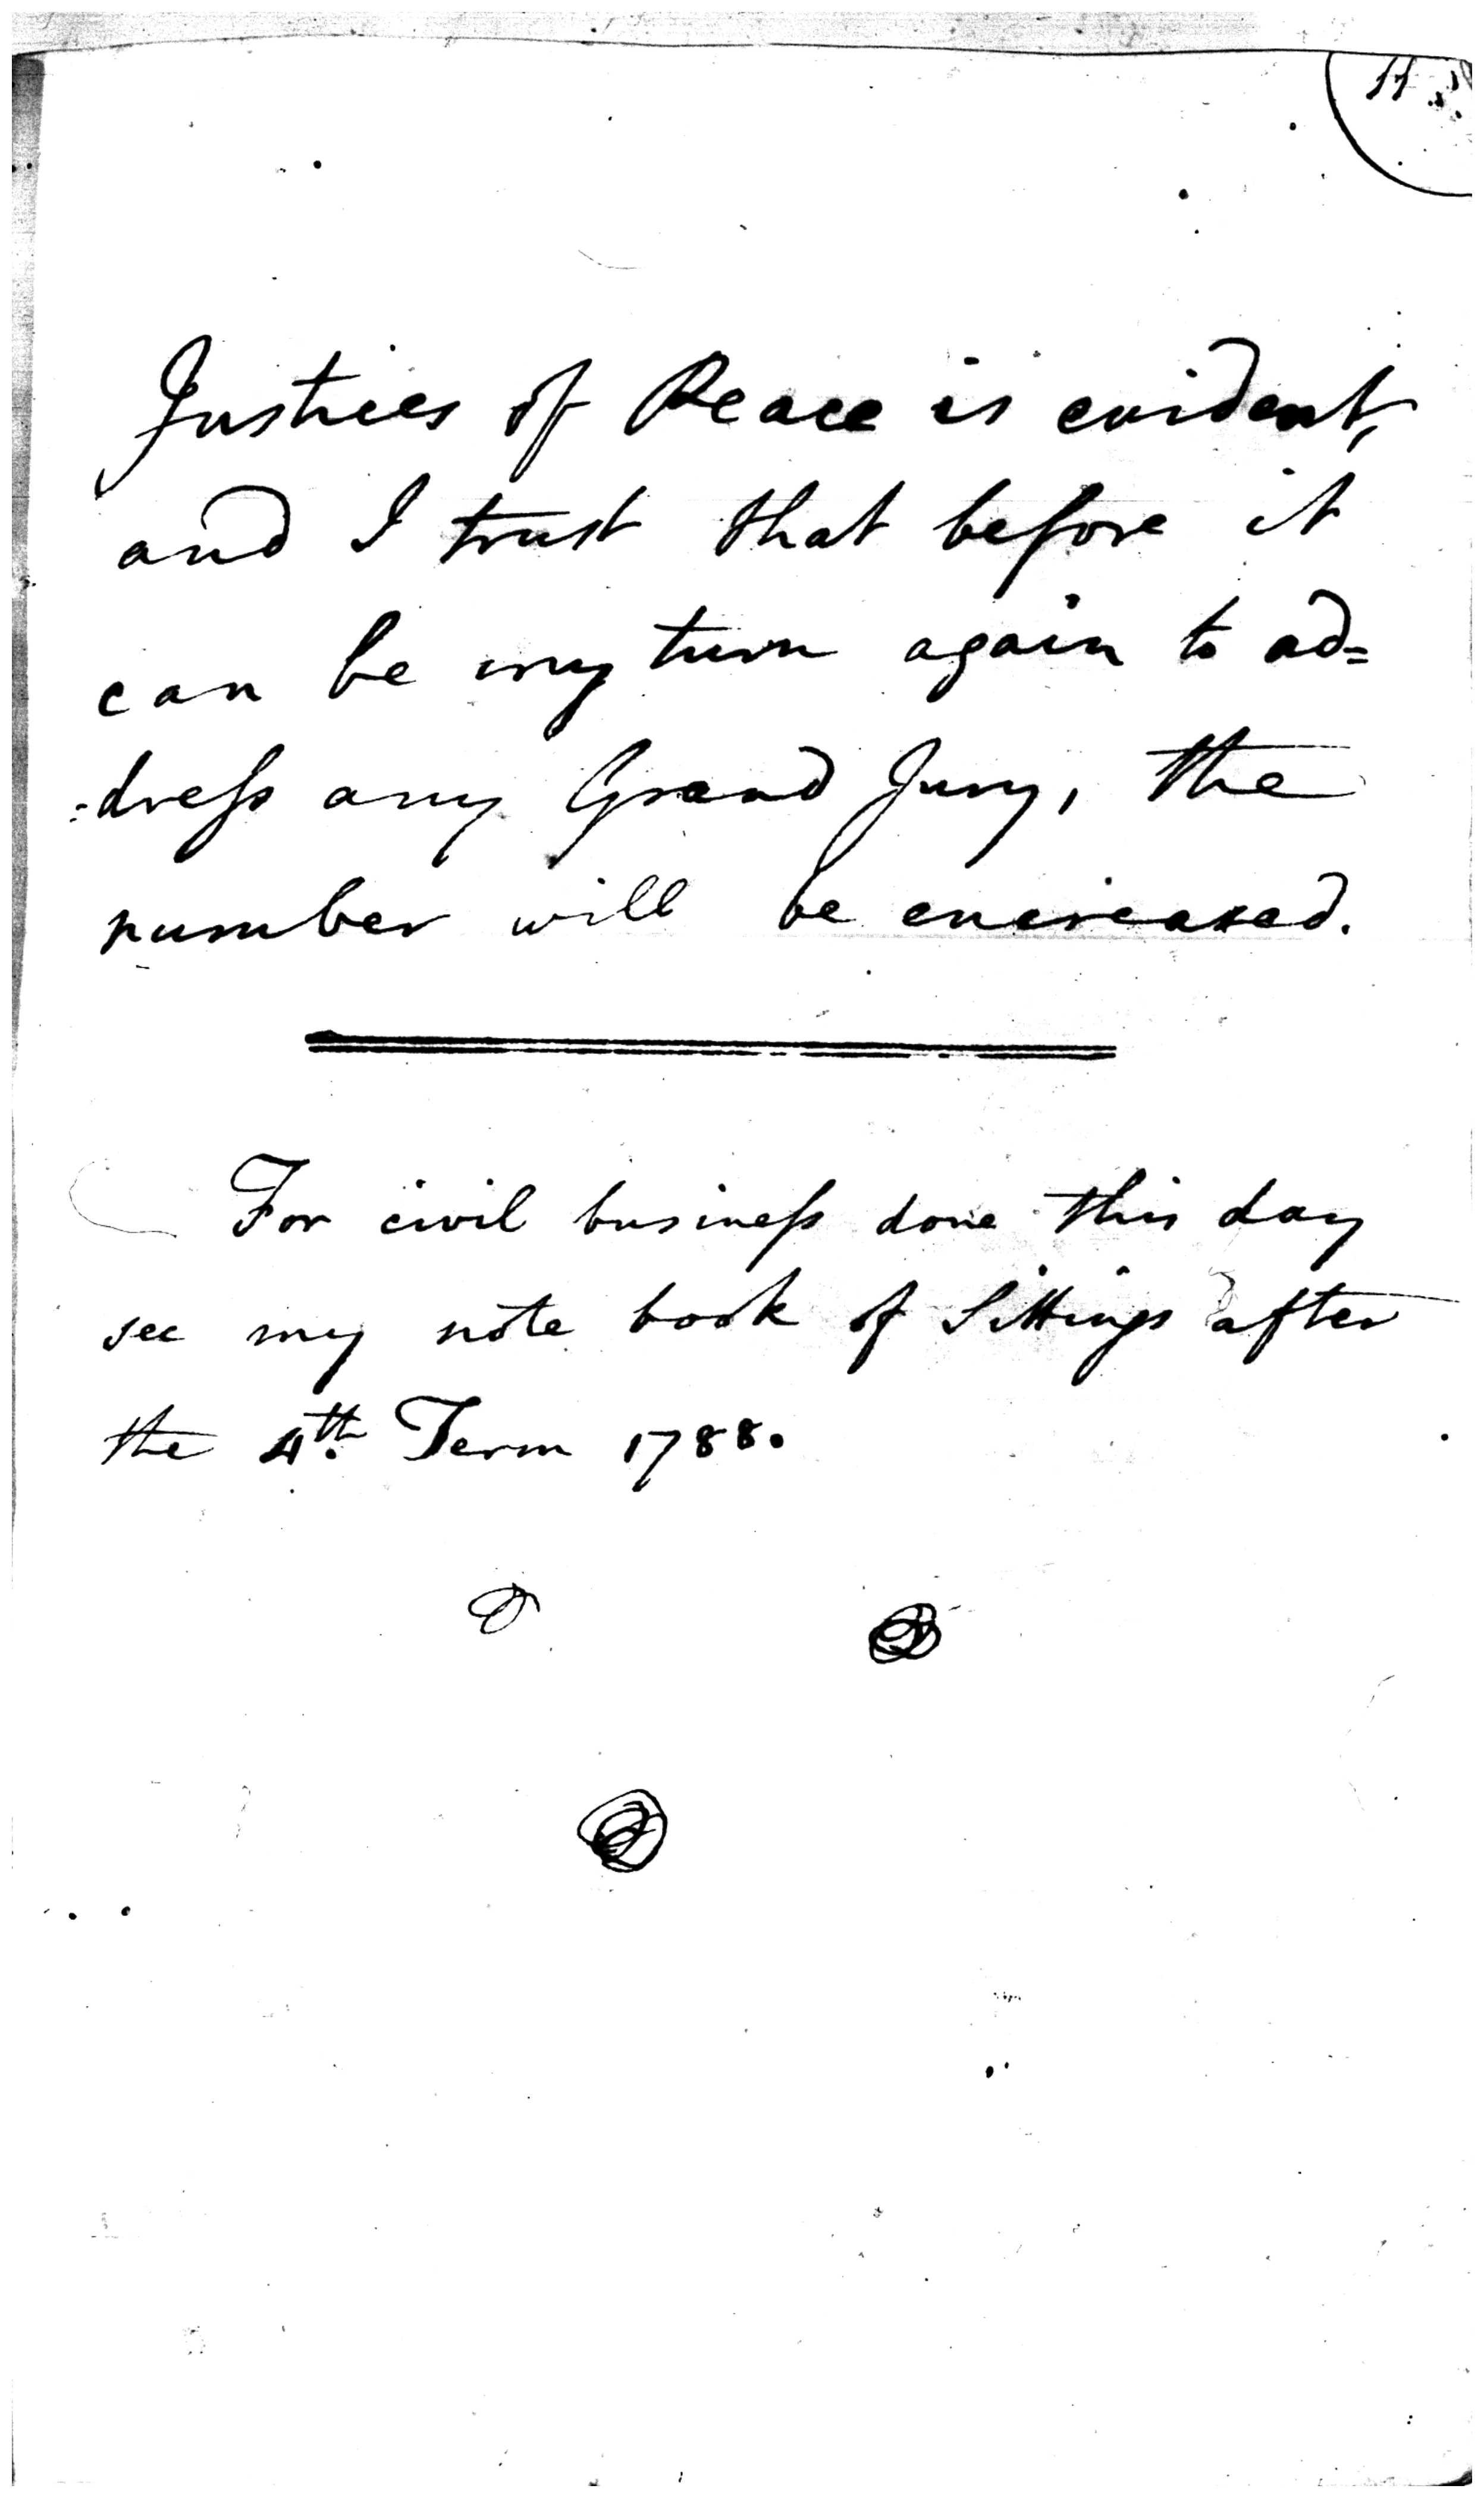 Justices of Peace is evident,
and I trust that before it
can be my turn again to ad=
=dreſs any Grand Jury, the
number will be encreased.
For civil buſineſs done this day
see my note book of Sittings after
the 4th. Term 1788.